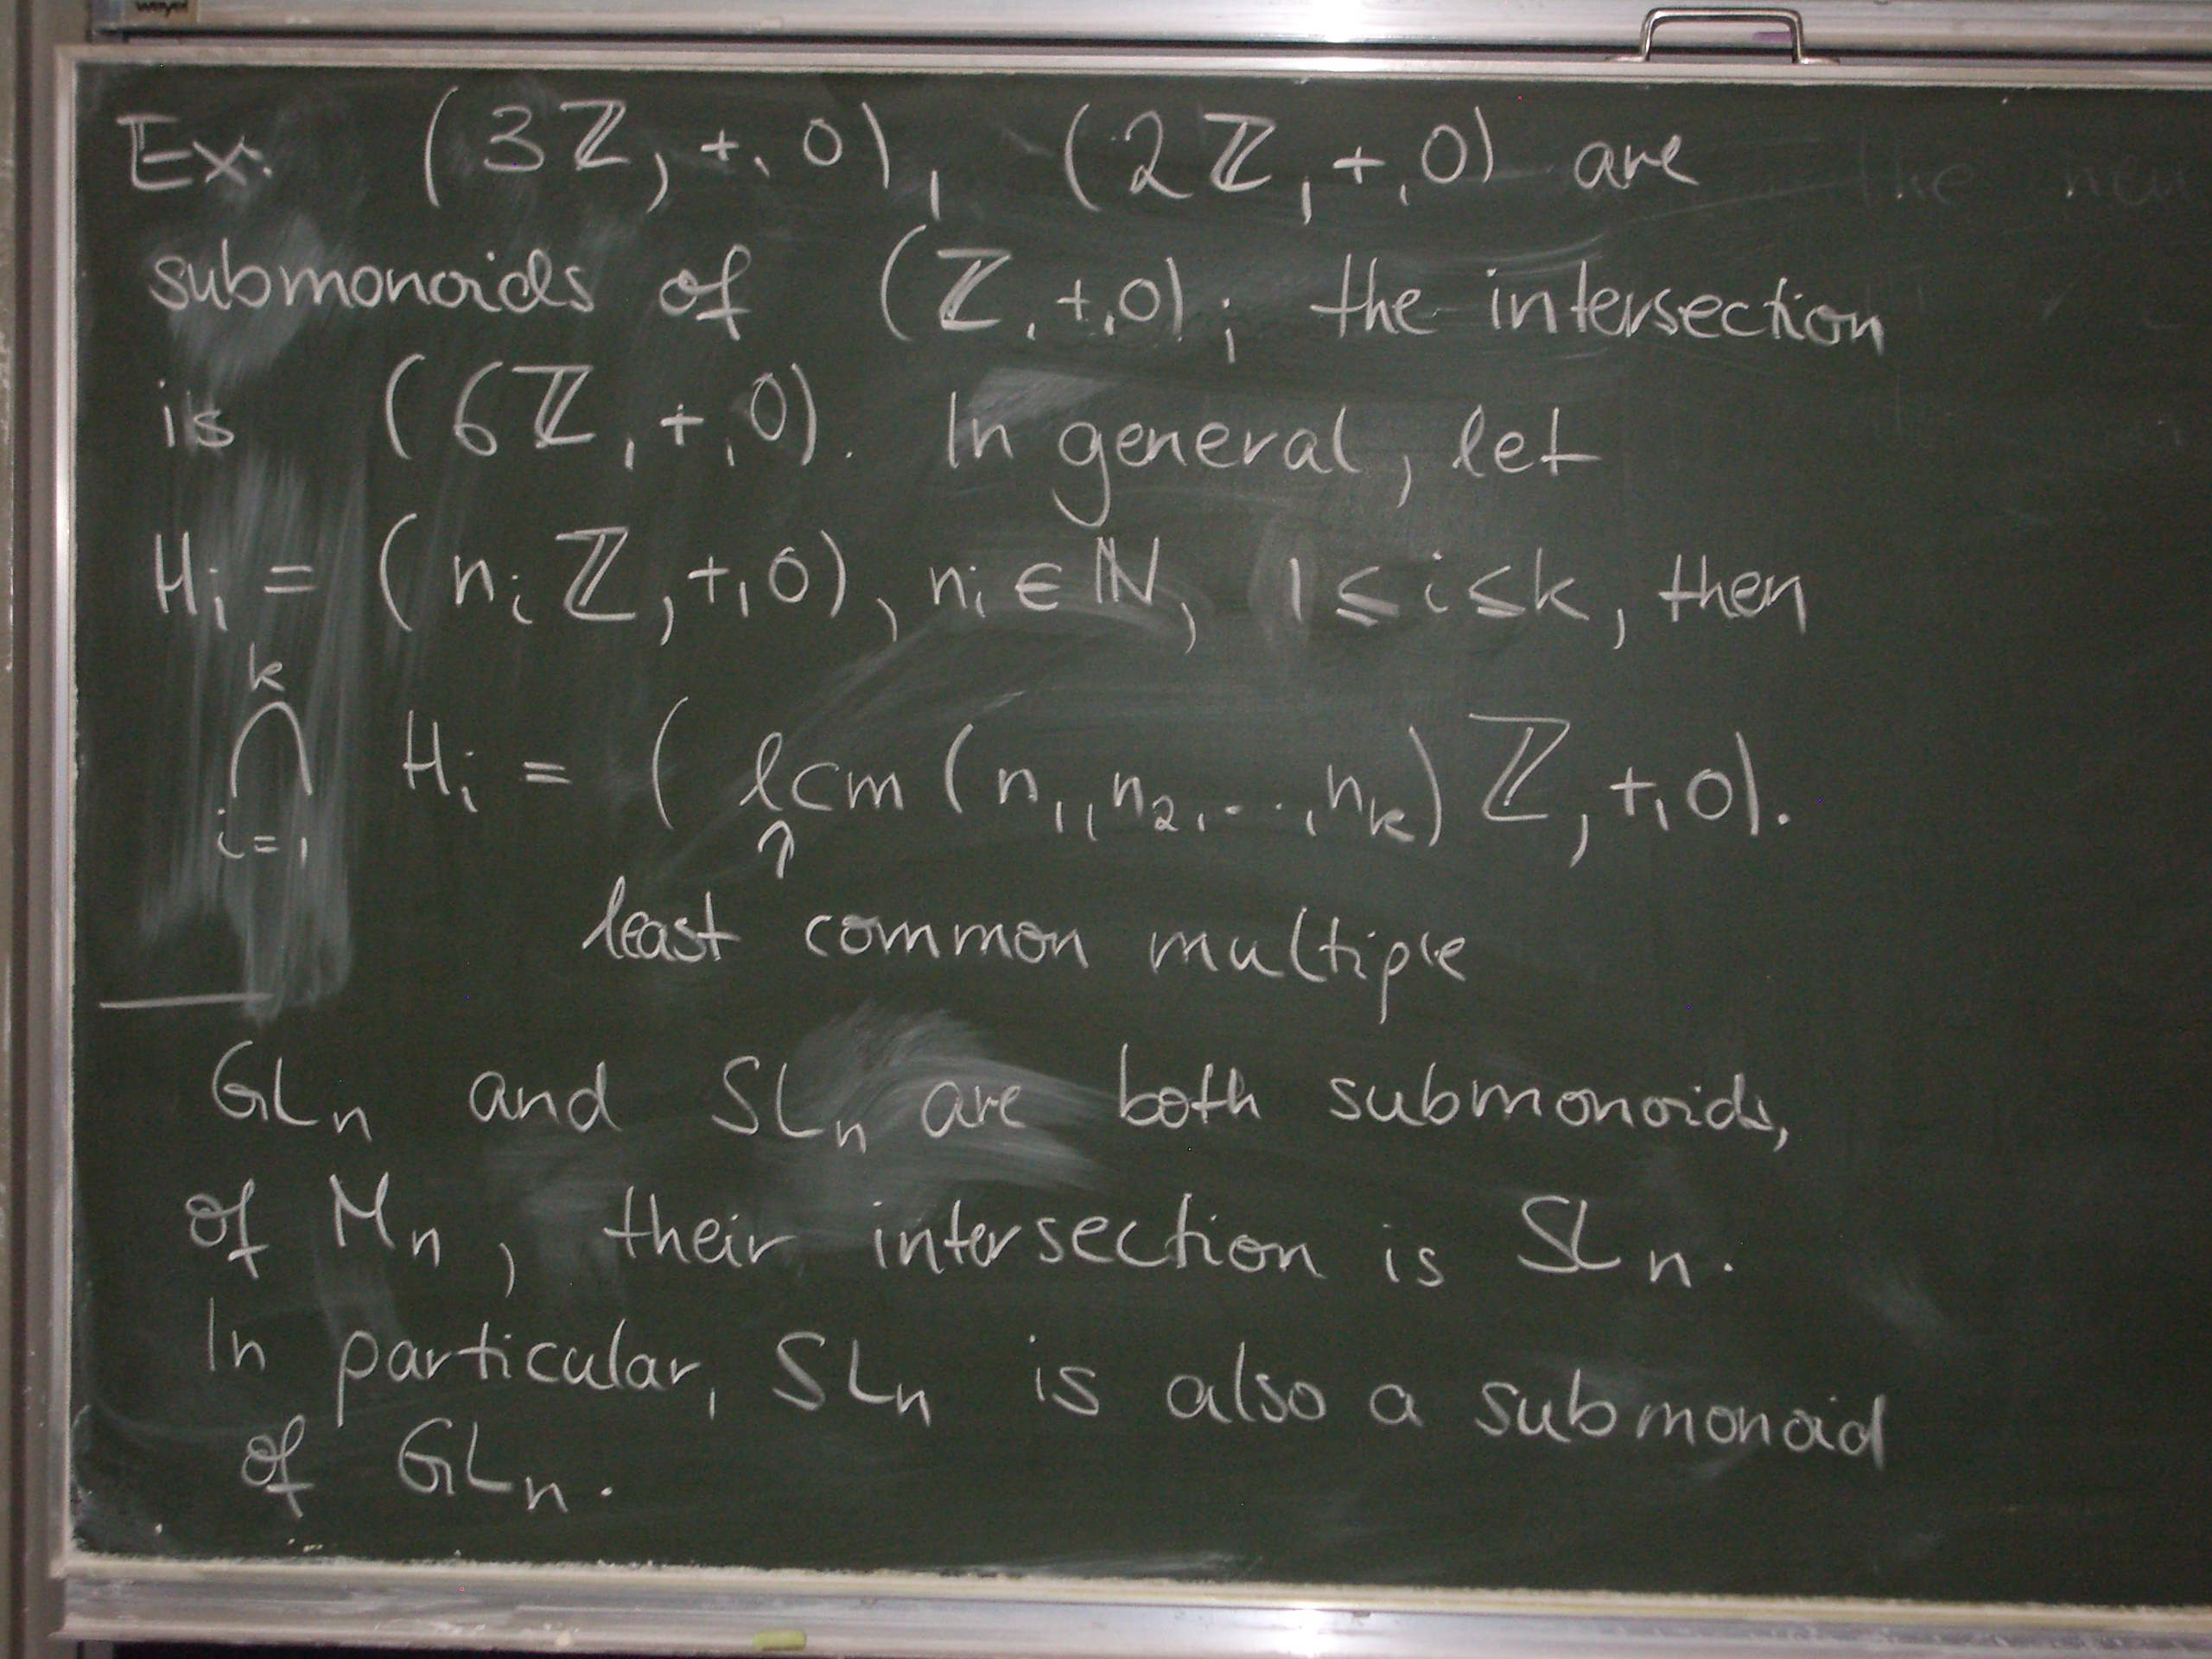 Ex. (3ℤ, +, 0), (2ℤ, +, 0) are
submonoids of (ℤ, +, 0); the intersection
is (6ℤ, +, 0). In general, let
Hᵢ = (nᵢ ℤ, +, 0), nᵢ ∈ ℕ, 1 ≤ i ≤ k, then
k
⋂ Hᵢ = (lcm (n₁, n₂, ..., nₖ) ℤ, +, 0).
i=1 ↑
least common multiple
GLₙ and SLₙ are both submonoids,
of Mₙ, their intersection is SLₙ.
In particular, SLₙ is also a submonoid
of GLₙ.